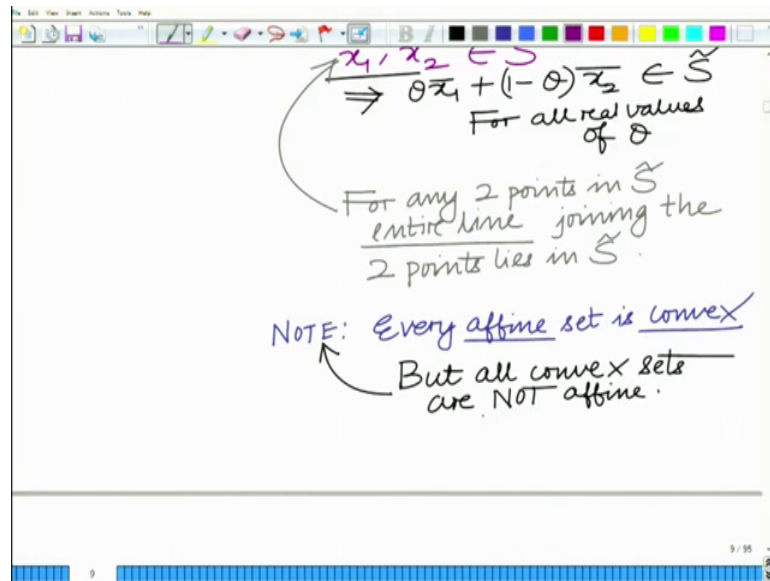 File Edit View Insert Actions Tools Help
x̄₁, x̄₂ ∈ S̃
⇒ θx̄₁ + (1-θ)x̄₂ ∈ S̃
For all real values
of θ
For any 2 points in S̃
entire line joining the
2 points lies in S̃.
NOTE: Every affine set is convex
But all convex sets
are NOT affine.
9 / 95
9